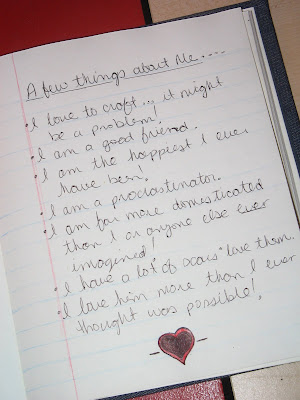 A few things about Me....
• I love to craft... it might
be a problem.
• I am a good friend.
• I am the happiest I ever
have been.
• I am a procrastinator.
• I am far more domesticated
than I or anyone else ever
imagined!
• I have a lot of love them.
• I love him more than I ever
thought was possible!